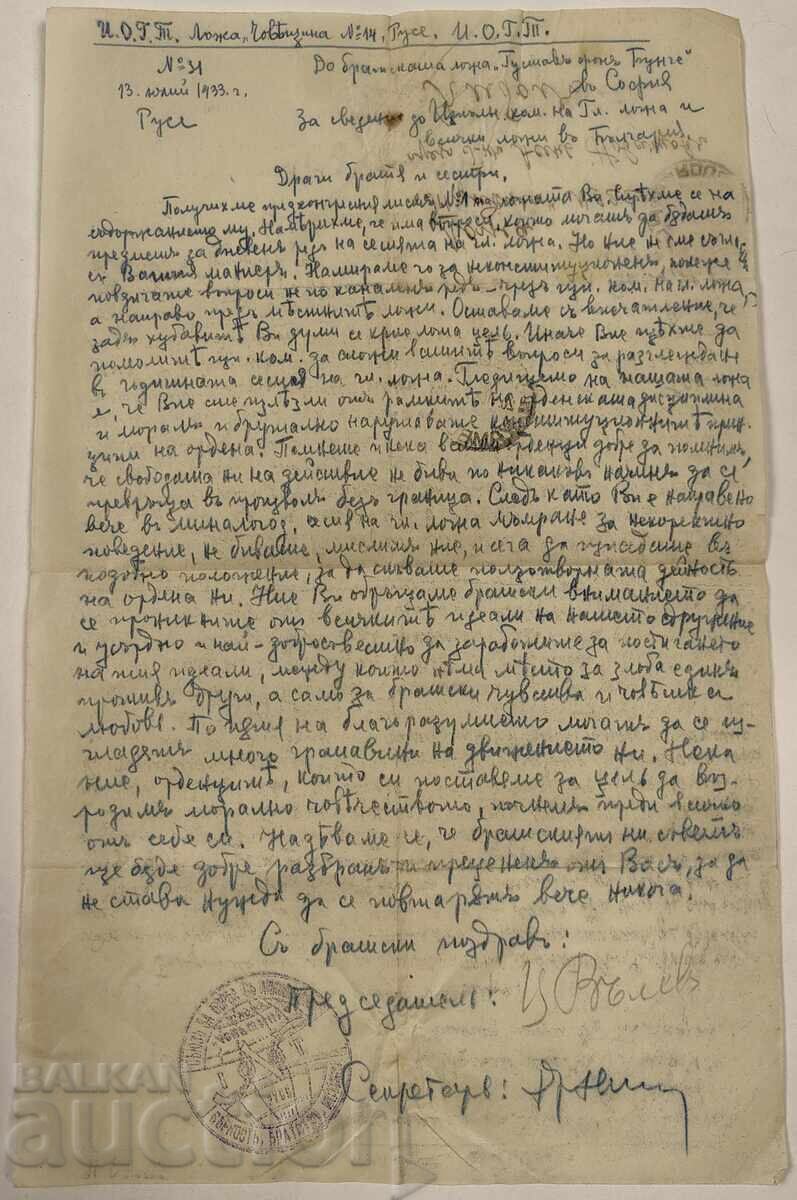 И.О.Г.Т. Ложа "Човѣщина" №14, Русе. И.О.Г.Т.
№31
13 юлий 1933.г.
Русе
До братската ложа "Густавъ фонъ Бунге"
въ София
За сведение до Изпълн. ком. на Гл. ложа и
всички ложи въ България
Драги братя и сестри,
Получихме предконгресния листъ №1 на ложата Ви. Спрѣхме се на
съдържанието му. Намѣрихме, че има въпроси, които могатъ да бѫдатъ
предметъ за дневенъ редъ на сесията на гл. ложа. Но ние не сме съгл.
съ Вашия маниеръ. Намираме го за неконституционенъ, понеже
повдигате въпроси не по каналенъ редъ - чрезъ ц. ком. на гл. ложа,
а направо чрезъ мѣстнитѣ ложи. Оставаме съ впечатление, че
задъ хубавитѣ Ви думи се крие лоша цель. Иначе Вие щѣхте да
помолите ц. ком. да сложи вашитѣ въпроси за разглеждане
въ годишната сесия на гл. ложа. Гледището на нашата ложа
е, че Вие сте излѣзли отъ рамкитѣ на орденската дисциплина
и моралъ и брутално нарушавате конституционнитѣ прин-
ципи на ордена. Помнете и нека всички орденци добре да помнимъ,
че свободата ни на действие не бива по никакъвъ начинъ да се
превръща въ произволъ безъ граница. Следъ като Ви е направено
вече въ миналогод. сесия на гл. ложа мъмрене за некоректно
поведение, не биваше, мислимъ ние, и сега да изпадате въ
подобно положение, за да спъвате ползотворната дейность
на ордена ни. Ние Ви обръщаме братски внимание да
се проникнете отъ всичкитѣ идеали на нашето сдружение
и усърдно и най-добросъвестно да заработите за постигането
на тия идеали, между които нѣма мѣсто за злоба единъ
противъ други, а само за братски чувства и човѣшка
любовь. По пѫтя на благоразумието могатъ да се из-
гладятъ много грапавини на движението ни. Нека
ние, орденцитѣ, които си поставяме за цель да въз-
родимъ морално човѣчеството, почнемъ преди всичко
отъ себе си. Надѣваме се, че братскиятъ ни съветъ
ще бѫде добре разбранъ и прецененъ отъ Васъ, за да
не става нужда да се повтарятъ вече никога.
Съ братски поздравъ:
Председатель: Ц. Вълевъ
Секретарь:
ВѢРНОСТЬ, БРАТСТВО
BALKAN
auction